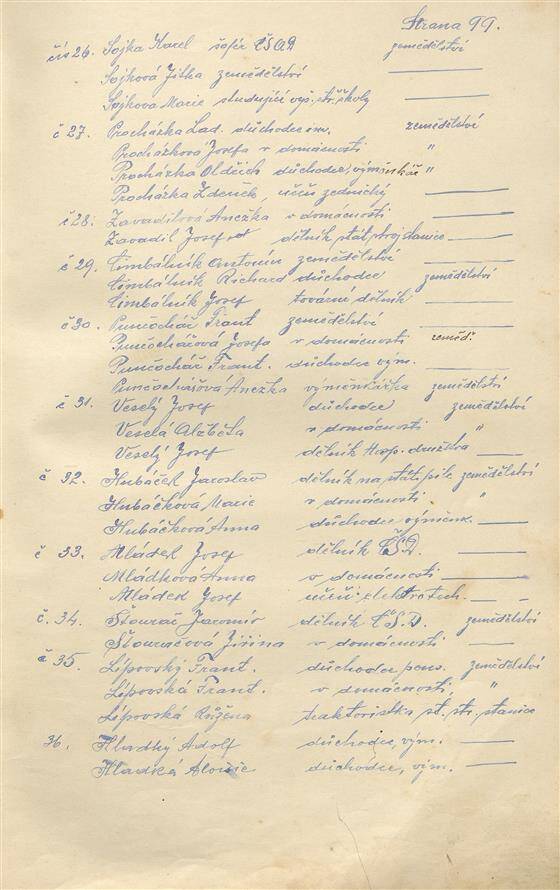 Strana 99.
čís 26. Sojka Karel šofér ČSAD zemědělství
Sojková Jitka zemědělství
Sojkova Marie studující vyš. stř. školy
č 27. Procházka Lad. důchodce inv. zemědělství
Procházková Josefa v domácnosti "
Procházka Oldřich důchodce, výminkář "
Procházka Zdeněk, učeň zednický
č 28. Zavadilová Anežka v domácnosti
Zavadil Josef dělník, stát. stroj. stanice
č 29. Cimbálník Antonín zemědělství
Cimbálník Richard důchodce zemědělství
Cimbálník Josef tovární dělník
č 30. Punčochář Frant zemědělství
Punčochářová Josefa v domácnosti zeměď.
Punčochář Frant. důchodce vým.
Punčochářová Anežka výměnkářka zemědělství
č 31. Veselý Josef důchodce zemědělství
Veselá Alžběta v domácnosti "
Veselý Josef dělník Hosp. družstva
č 32. Hubáček Jaroslav dělník na stát. pile zemědělství
Hubáčková Marie v domácnosti "
Hubáčková Anna důchodce výměnk.
č 33. Mládek Josef dělník ČSD.
Mládková Anna v domácnosti
Mládek Josef učeň elektrotech.
č. 34. Štourač Jaromír dělník ČSD. zemědělství
Štouračová Jiřina v domácnosti
č 35. Lípovský Frant. důchodce pens. zemědělství
Lípovská Frant. v domácnosti "
Lípovská Růžena traktoristka st. str. stanice
36. Hladký Adolf důchodce, vým.
Hladká Aloisie důchodce, vým.